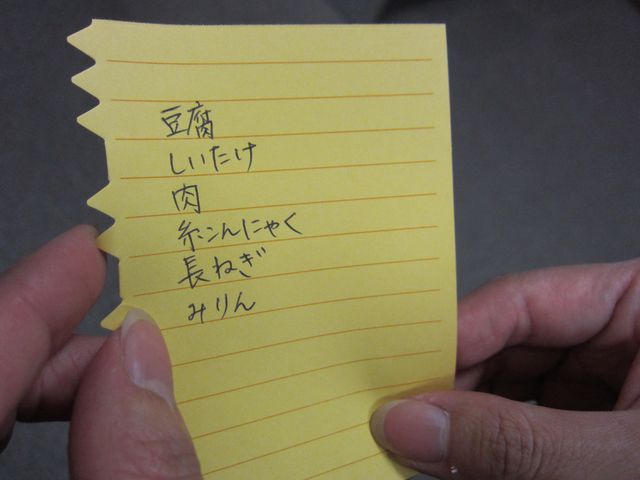 豆腐
しいたけ
肉
糸こんにゃく
長ねぎ
みりん